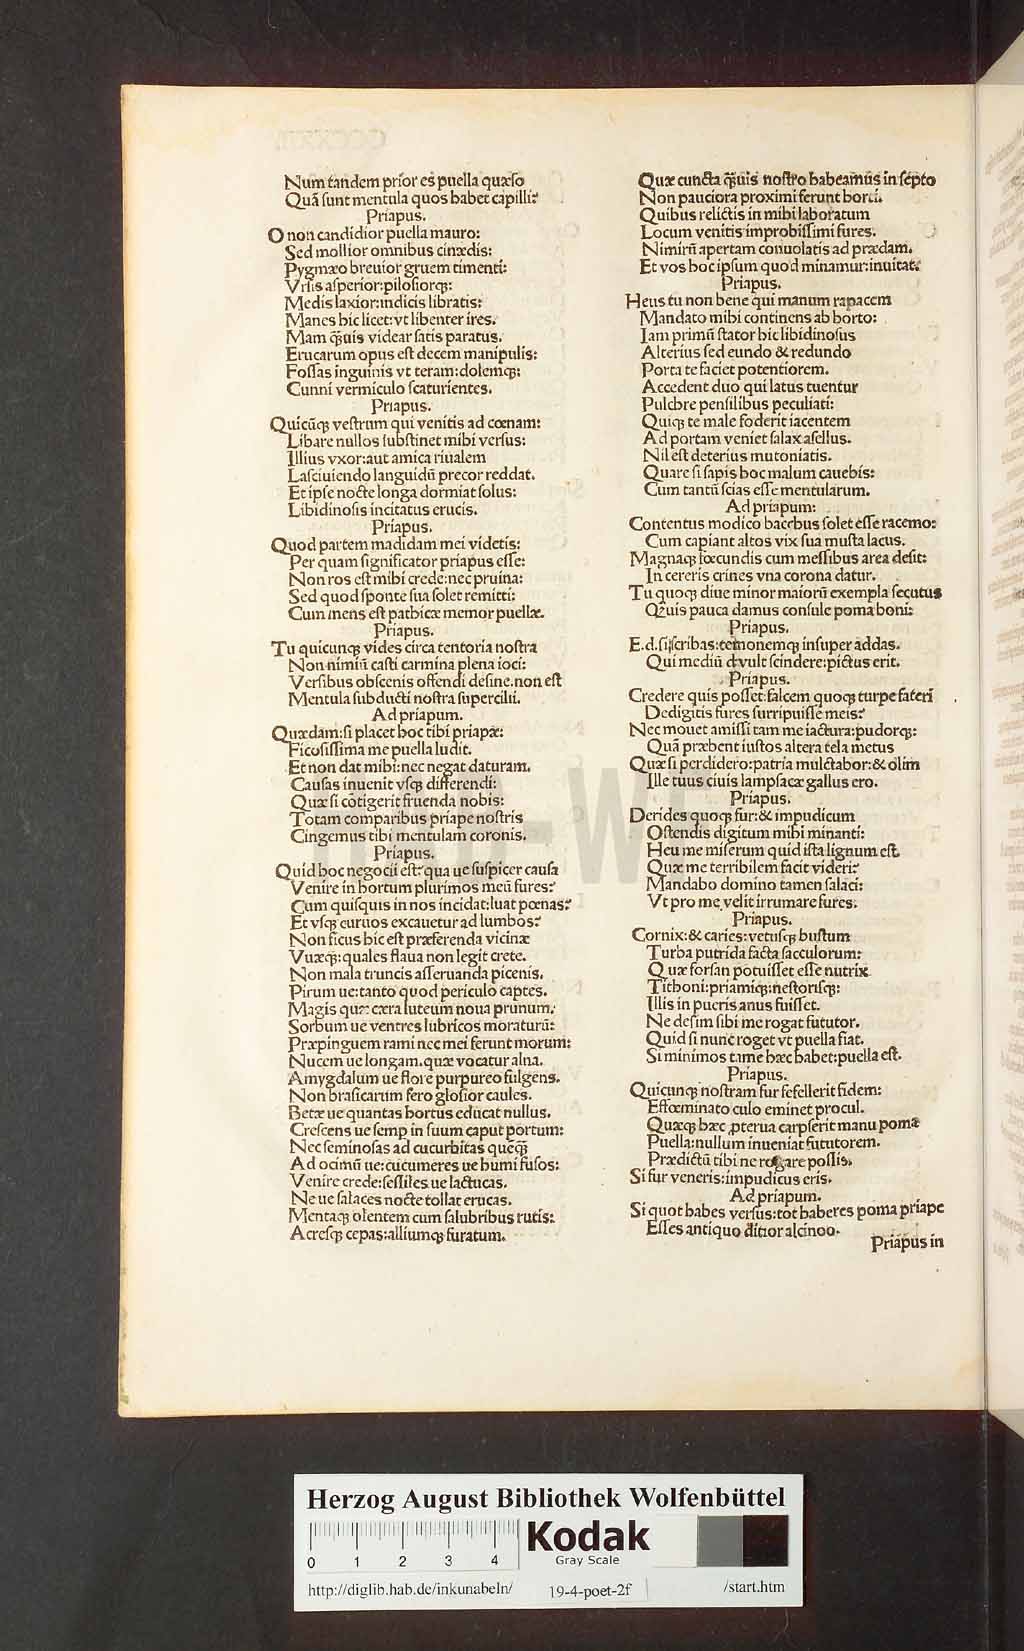 Num tandem prior es puella quæso
Quã sunt mentula quos habet capilli?
Priapus.
O non candidior puella mauro:
Sed mollior omnibus cinædis:
Pygmæo breuior gruem timenti:
Vrsis asperior: pilosiorq;:
Medis laxior: indicis libratis:
Manes hic licet: vt libenter ires.
Mam q̃uis videar satis paratus.
Erucarum opus est decem manipulis:
Fossas inguinis vt teram: dolemq;:
Cunni vermiculo scaturientes.
Priapus.
Quicũq; vestrum qui venitis ad cœnam:
Libare nullos sustinet mihi versus:
Illius vxor: aut amica riualem
Lasciuiendo languidũ precor reddat.
Et ipse nocte longa dormiat solus:
Libidinosis incitatus erucis.
Priapus.
Quod partem madidam mei videtis:
Per quam significator priapus esse:
Non ros est mihi crede: nec pruina:
Sed quod sponte sua solet remitti:
Cum mens est pathicæ memor puellæ.
Priapus.
Tu quicunq; vides circa tentoria nostra
Non nimiũ casti carmina plena ioci:
Versibus obscenis offendi desine. non est
Mentula subducti nostra supercilii.
Ad priapum.
Quædam: si placet hoc tibi priape:
Ficosissima me puella ludit.
Et non dat mihi: nec negat daturam.
Causas inuenit vsq; differendi:
Quæ si cõtigerit fruenda nobis:
Totam comparibus priape nostris
Cingemus tibi mentulam coronis.
Priapus.
Quid hoc negocii est? qua ue suspicer causa
Venire in hortum plurimos meũ fures?
Cum quisquis in nos incidat: luat pœnas?
Et vsq; curuos excauetur ad lumbos?
Non ficus hic est præferenda vicinæ
Vuæq;: quales flaua non legit crete.
Non mala truncis asseruanda picenis.
Pirum ue: tanto quod periculo captes.
Magis quæ: cæra luteum noua prunum.
Sorbum ue ventres lubricos moraturũ:
Præpinguem rami nec mei ferunt morum:
Nucem ue longam. quæ vocatur alna.
Amygdalum ue flore purpureo fulgens.
Non brasicarum fero glosior caules.
Betæ ue quantas hortus educat nullus.
Crescens ue semp in suum caput portum:
Nec seminosas ad cucurbitas quęq̃
Ad ocimũ ue: cucumeres ue humi fusos:
Venire crede: sessiles ue lactucas.
Ne ue salaces nocte tollat erucas.
Mentaq; olentem cum salubribus rutis:
Acresq; cepas: alliumq; furatum.
Quæ cuncta q̃uis nostro habeamus in septo
Non pauciora proximi ferunt horti.
Quibus relictis in mihi laboratum
Locum venitis improbissimi fures.
Nimirũ apertam conuolatis ad prædam.
Et vos hoc ipsum quod minamur: inuitat.
Priapus.
Heus tu non bene qui manum rapacem
Mandato mihi continens ab horto:
Iam primũ stator hic libidinosus
Alterius sed eundo & redundo
Porta te faciet potentiorem.
Accedent duo qui latus tuentur
Pulchre pensilibus peculiati:
Quiq; te male foderit iacentem
Ad portam veniet salax asellus.
Nil est deterius mutoniatis.
Quare si sapis hoc malum cauebis:
Cum tantũ scias esse mentularum.
Ad priapum:
Contentus modico bacchus solet esse racemo:
Cum capiant altos vix sua musta lacus.
Magnaq; fœcundis cum messibus area desit:
In cereris crines vna corona datur.
Tu quoq; diue minor maiorũ exempla secutus
Q̃uis pauca damus consule poma boni:
Priapus.
E. d. si scribas: temonemq; insuper addas.
Qui mediũ d vult scindere: pictus erit.
Priapus.
Credere quis posset: falcem quoq; turpe fateri
De digitis fures surripuisse meis?
Nec mouet amissi tam me iactura: pudorq;:
Quã præbent iustos altera tela metus
Quæ si perdidero: patria mulctabor: & olim
Ille tuus ciuis lampsacæ gallus ero.
Priapus.
Derides quoq; fur: & impudicum
Ostendis digitum mihi minanti:
Heu me miserum quid ista lignum est.
Quæ me terribilem facit videri?
Mandabo domino tamen salaci:
Vt pro me velit irrumare fures.
Priapus.
Cornix: & caries: vetusq; bustum
Turba putrida facta sacculorum:
Quæ forsan potuisset esse nutrix
Tithoni: priamiq;: nestorisq;:
Illis in pueris anus fuisset.
Ne desim sibi me rogat fututor.
Quid si nunc roget vt puella fiat.
Si minimos tame hæc habet: puella est.
Priapus.
Quicunq; nostram fur fefellerit fidem:
Effœminato culo eminet procul.
Quæq; hæc pterua carpserit manu poma
Puella: nullum inueniat fututorem.
Prædictũ tibi ne rogare possis.
Si fur veneris: impudicus eris.
Ad priapum.
Si quot habes versus: tot haberes poma priape
Esses antiquo ditior alcinoo.
Priapus in
Herzog August Bibliothek Wolfenbüttel
0 1 2 3 4
Kodak
Gray Scale
http://diglib.hab.de/inkunabeln/ 19-4-poet-2f /start.htm